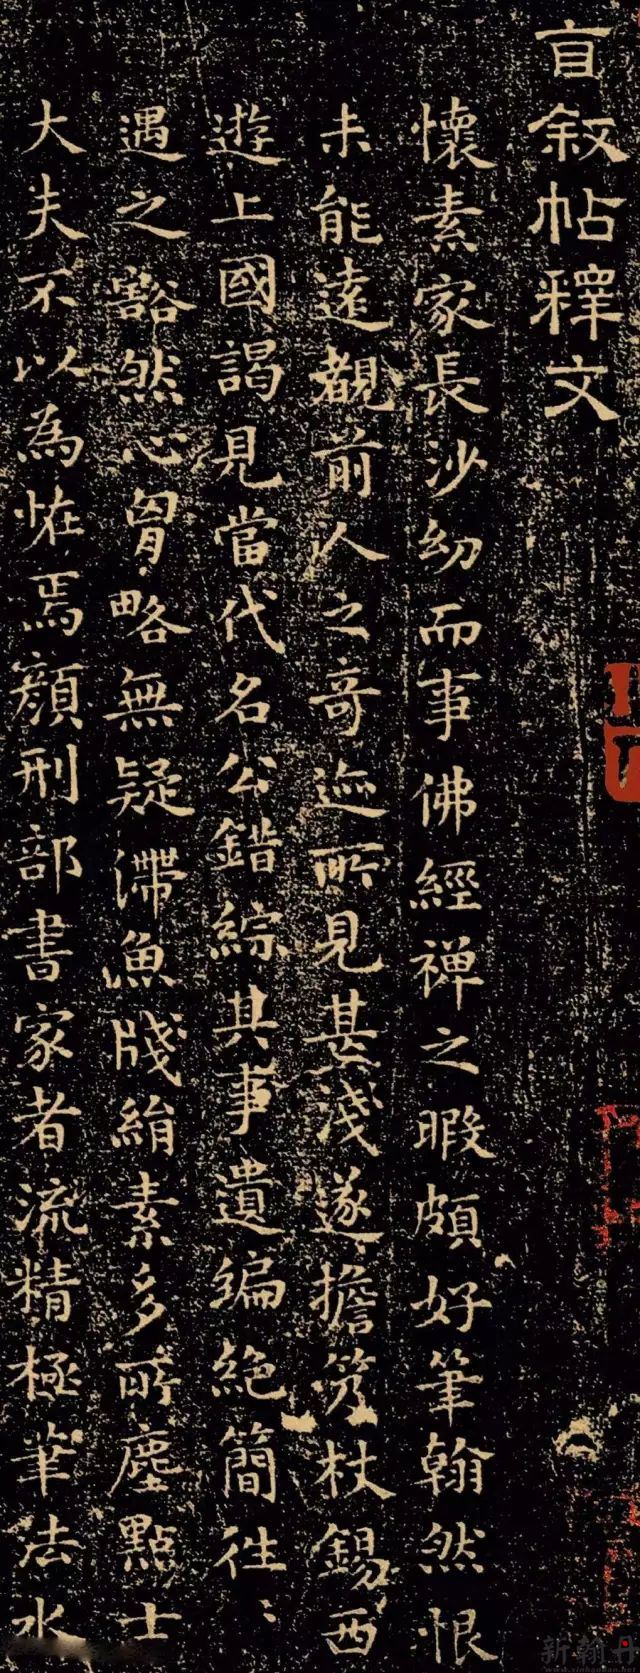 自叙帖釋文
懷素家長沙幼而事佛經禅之暇頗好筆翰然恨
未能遠覩前人之奇迹所見甚淺遂擔笈杖錫西
遊上國謁見當代名公錯綜其事遺編絶簡往〻
遇之豁然心胷略無疑滯魚牋絹素多所塵點士
大夫不以為恠焉顏刑部書家者流精極筆法水
新翰丹